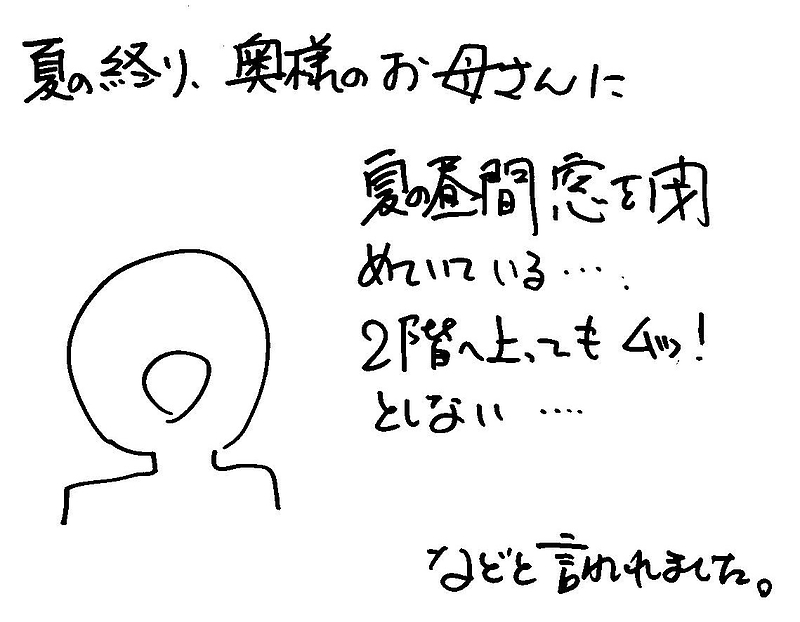 夏の終り、奥様のお母さんに
夏の昼間窓を閉
めていている….
2階へ上ってもムッ!
としない ‥‥
などと言われました。